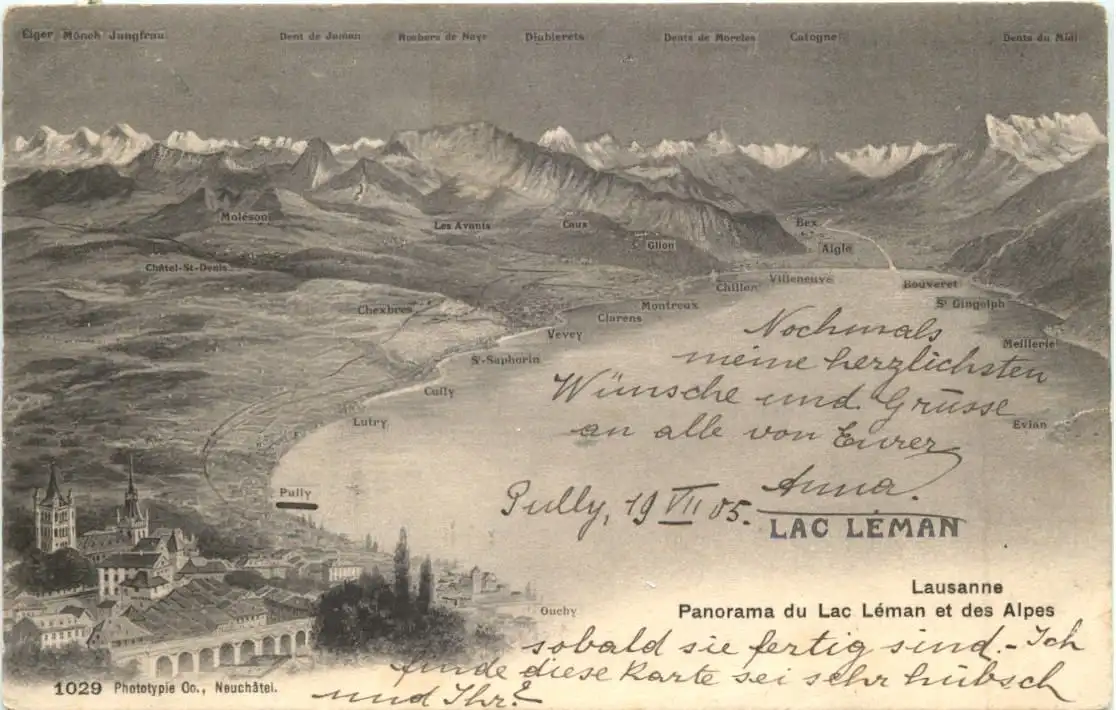 Eiger Mönch Jungfrau Dent de Jaman Rochers de Naye Diablerets Dents de Morcles Catogne Dents du Midi
Moléson Les Avants Caux Bex
Glion Aigle
Châtel-St-Denis
Chillon Villeneuve Bouveret
Chexbres Clarens Montreux St Gingolph
Vevey Meillerie
St-Saphorin
Cully
Lutry Evian
Pully
Nochmals
meine herzlichsten
Wünsche und Grüsse
an alle von Eurer
Anna.
Pully, 19 VII 05.
LAC LÉMAN
Lausanne
Panorama du Lac Léman et des Alpes
Ouchy
sobald sie fertig sind. - Ich
finde diese Karte sei sehr hübsch
und Ihr?
1029 Phototypie Co., Neuchâtel.